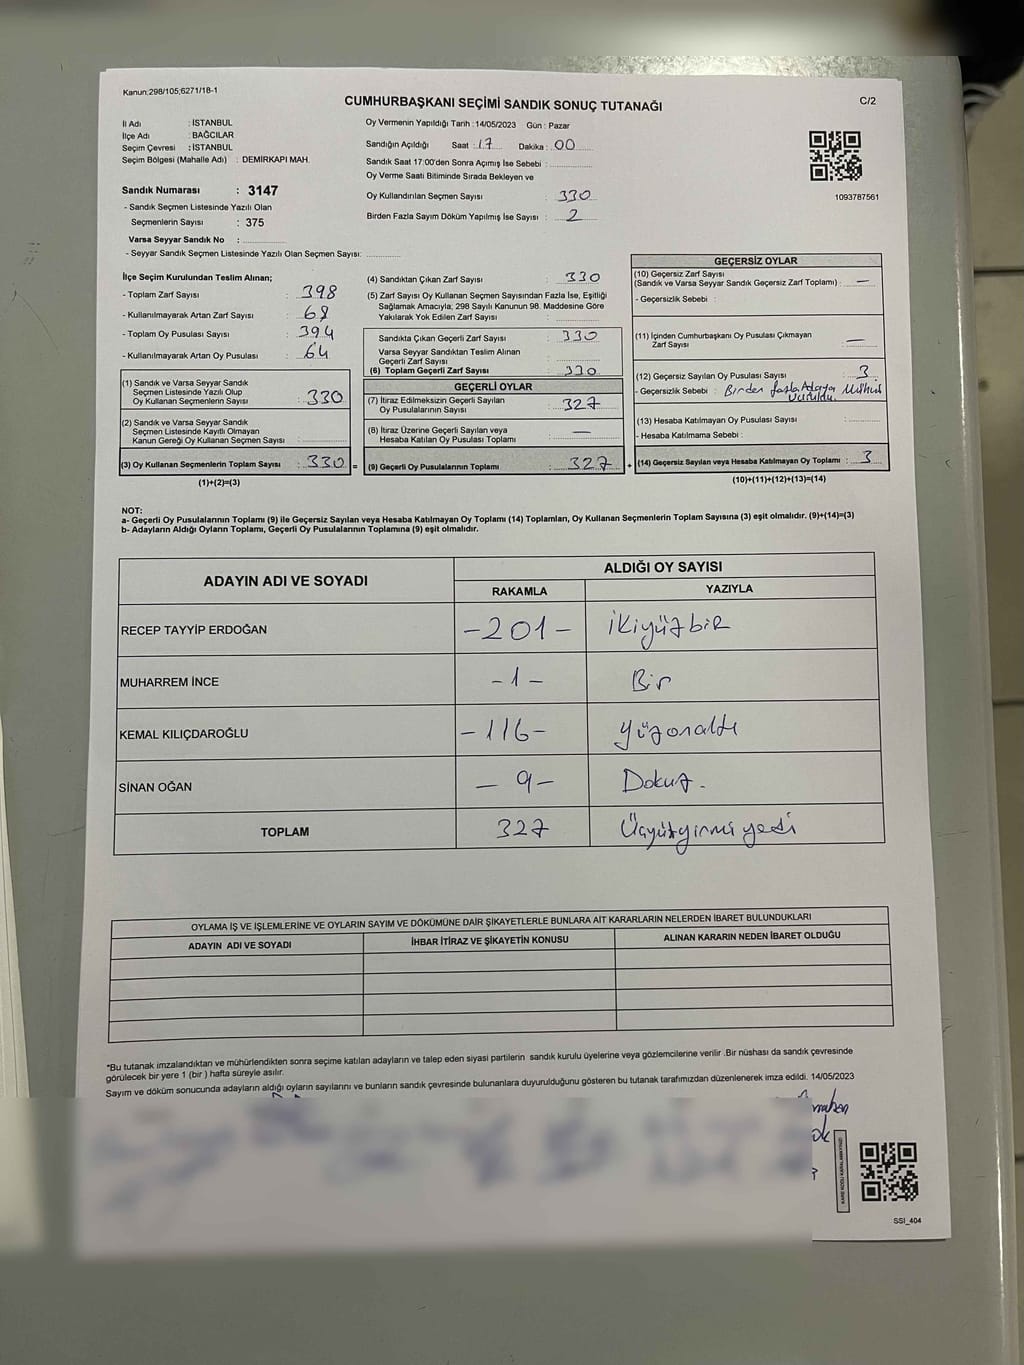 Kanun:298/105;6271/18-1
CUMHURBAŞKANI SEÇİMİ SANDIK SONUÇ TUTANAĞI
C/2
İl Adı : İSTANBUL
İlçe Adı : BAĞCILAR
Seçim Çevresi : İSTANBUL
Seçim Bölgesi (Mahalle Adı) : DEMİRKAPI MAH.
Sandık Numarası : 3147
- Sandık Seçmen Listesinde Yazılı Olan
Seçmenlerin Sayısı : 375
Varsa Seyyar Sandık No :
- Seyyar Sandık Seçmen Listesinde Yazılı Olan Seçmen Sayısı:
Oy Vermenin Yapıldığı Tarih : 14/05/2023 Gün : Pazar
Sandığın Açıldığı Saat : 17 Dakika : 00
Sandık Saat 17:00'den Sonra Açımış İse Sebebi :
Oy Verme Saati Bitiminde Sırada Bekleyen ve
Oy Kullandırılan Seçmen Sayısı : 330
Birden Fazla Sayım Döküm Yapılmış İse Sayısı : 2
1093787561
İlçe Seçim Kurulundan Teslim Alınan;
- Toplam Zarf Sayısı : 398
- Kullanılmayarak Artan Zarf Sayısı : 68
- Toplam Oy Pusulası Sayısı : 394
- Kullanılmayarak Artan Oy Pusulası : 64
(1) Sandık ve Varsa Seyyar Sandık
Seçmen Listesinde Yazılı Olup
Oy Kullanan Seçmenlerin Sayısı : 330
(2) Sandık ve Varsa Seyyar Sandık
Seçmen Listesinde Kayıtlı Olmayan
Kanun Gereği Oy Kullanan Seçmen Sayısı :
(3) Oy Kullanan Seçmenlerin Toplam Sayısı : 330 =
(1)+(2)=(3)
(4) Sandıktan Çıkan Zarf Sayısı : 330
(5) Zarf Sayısı Oy Kullanan Seçmen Sayısından Fazla İse, Eşitliği
Sağlamak Amacıyla, 298 Sayılı Kanunun 98. Maddesine Göre
Yakılarak Yok Edilen Zarf Sayısı :
Sandıkta Çıkan Geçerli Zarf Sayısı : 330
Varsa Seyyar Sandıktan Teslim Alınan
Geçerli Zarf Sayısı :
(6) Toplam Geçerli Zarf Sayısı : 330
GEÇERLİ OYLAR
(7) İtiraz Edilmeksizin Geçerli Sayılan
Oy Pusulalarının Sayısı : 327
(8) İtiraz Üzerine Geçerli Sayılan veya
Hesaba Katılan Oy Pusulası Toplamı : —
(9) Geçerli Oy Pusulalarının Toplamı : 327 +
GEÇERSİZ OYLAR
(10) Geçersiz Zarf Sayısı
(Sandık ve Varsa Seyyar Sandık Geçersiz Zarf Toplamı) : —
- Geçersizlik Sebebi :
(11) İçinden Cumhurbaşkanı Oy Pusulası Çıkmayan
Zarf Sayısı : —
(12) Geçersiz Sayılan Oy Pusulası Sayısı : 3
- Geçersizlik Sebebi : Birden fazla Adaya Mühür
Vuruldu.
(13) Hesaba Katılmayan Oy Pusulası Sayısı :
- Hesaba Katılmama Sebebi :
(14) Geçersiz Sayılan veya Hesaba Katılmayan Oy Toplamı : 3
(10)+(11)+(12)+(13)=(14)
NOT:
a- Geçerli Oy Pusulalarının Toplamı (9) ile Geçersiz Sayılan veya Hesaba Katılmayan Oy Toplamı (14) Toplamları, Oy Kullanan Seçmenlerin Toplam Sayısına (3) eşit olmalıdır. (9)+(14)=(3)
b- Adayların Aldığı Oyların Toplamı, Geçerli Oy Pusulalarının Toplamına (9) eşit olmalıdır.
ADAYIN ADI VE SOYADI
ALDIĞI OY SAYISI
RAKAMLA YAZIYLA
RECEP TAYYİP ERDOĞAN -201- ikiyüzbir
MUHARREM İNCE -1- Bir
KEMAL KILIÇDAROĞLU -116- yüzonaltı
SİNAN OĞAN - 9- Dokuz.
TOPLAM 327 Üçyüzyirmi yedi
OYLAMA İŞ VE İŞLEMLERİNE VE OYLARIN SAYIM VE DÖKÜMÜNE DAİR ŞİKAYETLERLE BUNLARA AİT KARARLARIN NELERDEN İBARET BULUNDUKLARI
ADAYIN ADI VE SOYADI İHBAR İTİRAZ VE ŞİKAYETİN KONUSU ALINAN KARARIN NEDEN İBARET OLDUĞU
*Bu tutanak imzalandıktan ve mühürlendikten sonra seçime katılan adayların ve talep eden siyasi partilerin sandık kurulu üyelerine veya gözlemcilerine verilir .Bir nüshası da sandık çevresinde
görülecek bir yere 1 (bir ) hafta süreyle asılır.
Sayım ve döküm sonucunda adayların aldığı oyların sayılarını ve bunların sandık çevresinde bulunanlara duyurulduğunu gösteren bu tutanak tarafımızdan düzenlenerek imza edildi. 14/05/2023
SSI_404